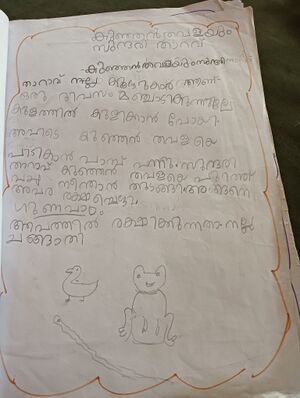 കുഞ്ഞൻ തവളയും
സുന്ദരി താറാവ്
കുഞ്ഞൻ തവളയും സുന്ദരി
താറാവ് നല്ല കൂട്ടുകാർ ആണ്
ഒരു ദിവസം മഞ്ചാടികുന്നിലെ
കുളത്തിൽ കുളിക്കാൻ പോയി.
അവിടെ കുഞ്ഞൻ തവളയെ
പിടികാൻ പാമ്പ് വന്നു. സുന്ദരി
താറാവ് കുഞ്ഞൻ തവളയെ പുറത്ത്
അവർ നീന്താൻ തുടങ്ങി അങ്ങനെ
രക്ഷപ്പെട്ടു
ഗുണപാഠം
ആപത്തിൽ രക്ഷിക്കുന്നതാ നല്ല
ചങ്ങാതി